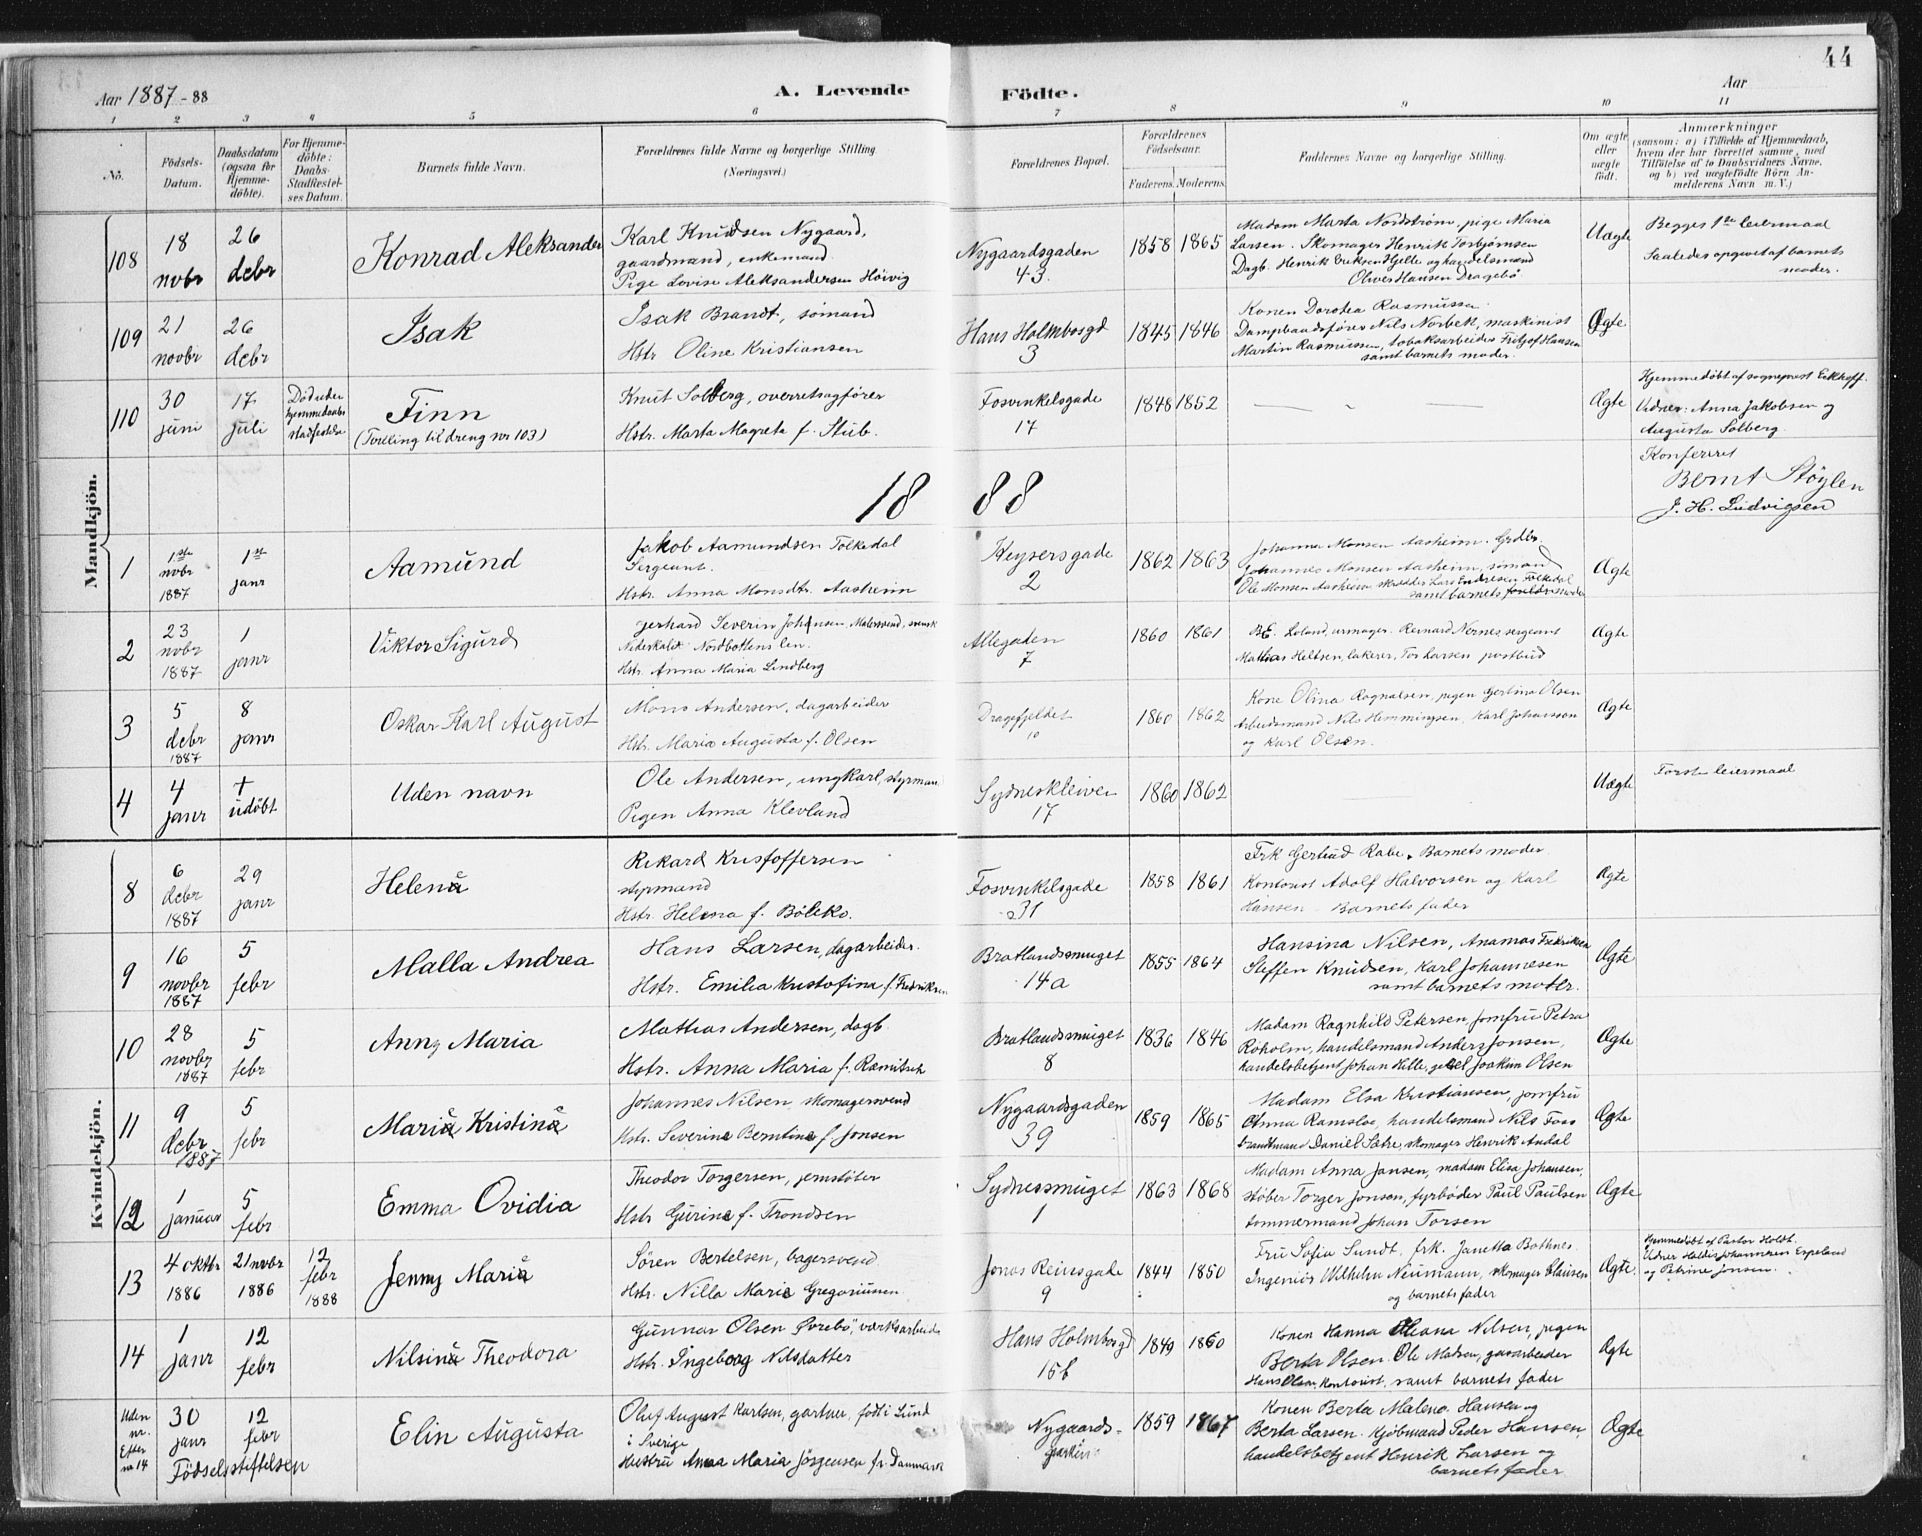 44
Aar 1887-88
A. Levende Födte.
Aar
1 2 3 4 5 6 7 8 9 10 11
No.
Födsels-Datum.
Daabsdatum (ogsaa for Hjemmedöbte).
For Hjemmedöbte: Daabs-Stadfestelses Datum.
Barnets fulde Navn.
Forældrenes fulde Navne og borgerlige Stilling (Næringsvei.)
Forældrenes Bopæl.
Forældrenes Födselsaar.
Faderens. Moderens.
Faddernes Navne og borgerlige Stilling.
Om ægte eller uægte födt.
Anmærkninger
(saasom: a) i Tilfælde af Hjemmedaab, hvem der har forrettet samme, med Tilföielse af to Daabsvidners Navne, og b) ved uægtefödte Börn Anmelderens Navn m. V.)
Mandkjön.
108
18 novbr
26 debr
Konrad Aleksander
Karl Knudsen Nygaard,
gaardmand, enkemand.
Pige Lovise Aleksandersen Höivig
Nygaardsgaden
43.
1858 1865
Madam Marta Nordström, pige Maria
Larsen. Skomager Henrik Torbjørnsen
Dagb. Henrik Eriksen Hjelle og handelsmand
Oliver Hansen Dragebö
Uægte
Begges 1ste leiermaal
Saaledes opgivet af barnets
moder.
109
21 novbr
26 debr
Isak
Isak Brandt, sömand
Hstr Oline Kristiansen
Hans Holmbosgd
3
1845 1846
Konen Dorotea Rasmussen.
Dampbaadsförer Nils Norbek, maskinist
Martin Rasmussen, tobaksarbeider Fritjof Hansen
samt barnets moder.
Ægte
110
30 juni
17 juli
Död uden
hjemmedaabs
stadfestelse
Finn
(Tvilling til dreng nr 103)
Knut Solberg, overretsagförer
Hstr. Marta Magreta f. Stub.
Fosvinkelsgade
17
1848 1852
— " —
Ægte
Hjemmedöbt af sogneprest Eckhoff.
Vidner: Anna Jakobsen og
Augusta Solberg.
Konfereret
Bernt Støylen
J. H. Ludvigsen
1888
1
1ste novbr 1887
1ste janr
Aamund
Jakob Aamundsen Folkedal
Sergeant.
Hstr. Anna Monsdtr. Aasheim
Keysersgade
2
1862 1863
Johanna Monsen Aasheim. Grdbr.
Johannes Monsen Aasheim, sömand
Ole Monsen Aasheim skrædder Lars Endresen Folkedal
samt barnets moder
Ægte
2
23 novbr 1887
1 janr
Viktor Sigurd
Gerhard Severin Johansen, Malersvend, svensk
Nederkalix Nordbottens len.
Hstr. Anna Maria Lindberg
Allegaden
7
1860 1861
Loland, urmager. Bernard Nernes sergeant
Mathias Heltsen, lakerer, Tor Larsen postbud
Ægte
3
5 debr 1887
8 janr
Oskar Karl August
Mons Andersen, dagarbeider
Hstr. Maria Augusta f. Olsen
Dragefjeldet
10
1860 1862
Kone Olina Ragnalsen, pigen Gertina Olsen
Arbeidsmand Nils Hemmingsen, Karl Johansson
og Karl Olsen.
Ægte
4
4 janr
+ udöbt
Uden navn
Ole Andersen, ungkarl, styrman
Pigen Anna Klevland
Sydneskleiven
17
1860 1862
—
Uægte
Förste leiermaal
Kvindekjön.
8
6 debr 1887
29 janr
Helena
Rikard Kristoffersen
styrmand
Hstr. Helena f. Böleko.
Fosvinkelsgade
31
1858 1861
Frk Gertrud Rabe. Barnets moder.
Kontorist Adolf Halvorsen og Karl
Hansen. Barnets fader
Ægte
9
16 novbr 1887
5 febr
Malla Andrea
Hans Larsen, dagarbeider.
Hstr. Emilia Kristofina f. Fredriksen
Bratlandssmuget
14a
1855 1864
Hansina Nilsen, Fredriksen
Steffen Knudsen, Karl Johannesen
samt barnets moder.
Ægte
10
28 novbr 1887
5 febr
Anny Maria
Mathias Andersen, dagb.
Hstr. Anna Maria f. Ramitsch
Bratlandssmuget
8
1836 1846
Madam Ragnhild Petersen, jomfru Petra
Roholm, handelsmand Anders Jonsen,
handelsbetjent Johan Hille, Joakim Olsen
Ægte
11
9 debr 1887
5 febr
Maria Kristina
Johannes Nilsen, skomagersvend
Hstr. Severine Berntine f. Jonsen
Nygaardsgaden
39
1859 1865
Madam Elsa Kristiansen, jomfru
Anna Ramsloe, handelsmand Nils Foss
brandmand Daniel Sætre, skomager Henrik Andal
Ægte
12
1 januar
5 febr
Emma Ovidia
Theodor Torgersen, jernstöber
Hstr Gurine f. Trondsen
Sydnessmuget
1
1863 1868
Madam Anna Jansen, madam Elisa Johansen,
stöber Torger Jonsen, fyrböder Paul Paulsen
tömmermand Johan Torsen
Ægte
13
4 oktbr 1886
21 novbr 1886
12 febr 1888
Jenny Maria
Sören Bertelsen, bagersvend
Hstr. Nilla Marie Gregoriussen
Jonas Reinsgade
9
1844 1850
Fru Sofia Sundt, frk. Janetta Bothnes.
Ingeniör Wilhelm Neumann, skomager Clausen
og barnets fader
Ægte.
Hjemmedöbt af Pastor Holdt.
Vidner Haldis Johannesen Espeland
og Petrine Jonsen.
14
1 janr
12 febr
Nilsina Theodora
Gunnar Olsen Övrebö, værksarbeider
Hstr. Ingeborg Nilsdatter
Hans Holmbosgd
15b
1849 1860
Konen Hanna Oleana Nilsen, pigen
Berta Olsen. Ole Madsen, gasarbeider
Hans Olsen, kontorist, samt barnets fader
Ægte
Uden nr. Efter no 14
30 janr
12 febr
Födselsstiftelsen
Elin Augusta
Oluf August Karlsen, gartner, födt i Lund
i Sverige
Hustru Anna Maria Jörgensen fr. Danmark
Nygaards-
parken
1859 1867
Konen Berta Malene Hansen og
Berta Larsen. Kjöbmand Peder Hansen,
handelsbetjent Henrik Larsen og
barnets fader
Ægte